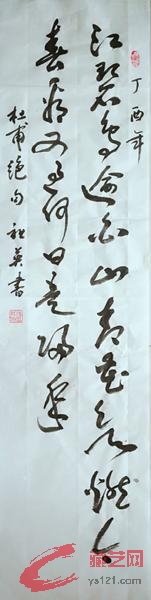 丁酉年
江碧鸟逾白山青花欲燃今
春看又过何日是归年
杜甫绝句 秋英书
ys121.com